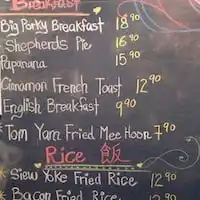 Breakfast
Big Porky Breakfast 18.90
Shepherds Pie 16.90
Papanana 15.90
Cinnamon French Toast 12.90
English Breakfast 9.90
Tom Yam Fried Mee Hoon 7.90
Rice 飯
Siew Yoke Fried Rice 12.90
Bacon Fried Rice 12.90